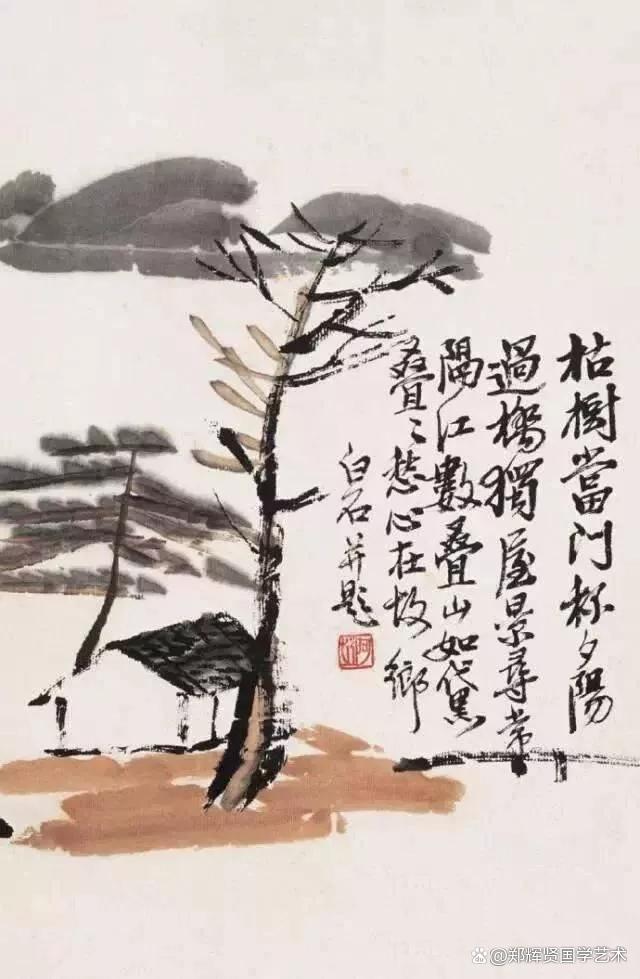 枯樹當門夕陽
過橋獨屋景尋常
隔江數疊山如黛
疊〻愁心在故鄉
白石并題
阿芝
@郑辉贤国学艺术